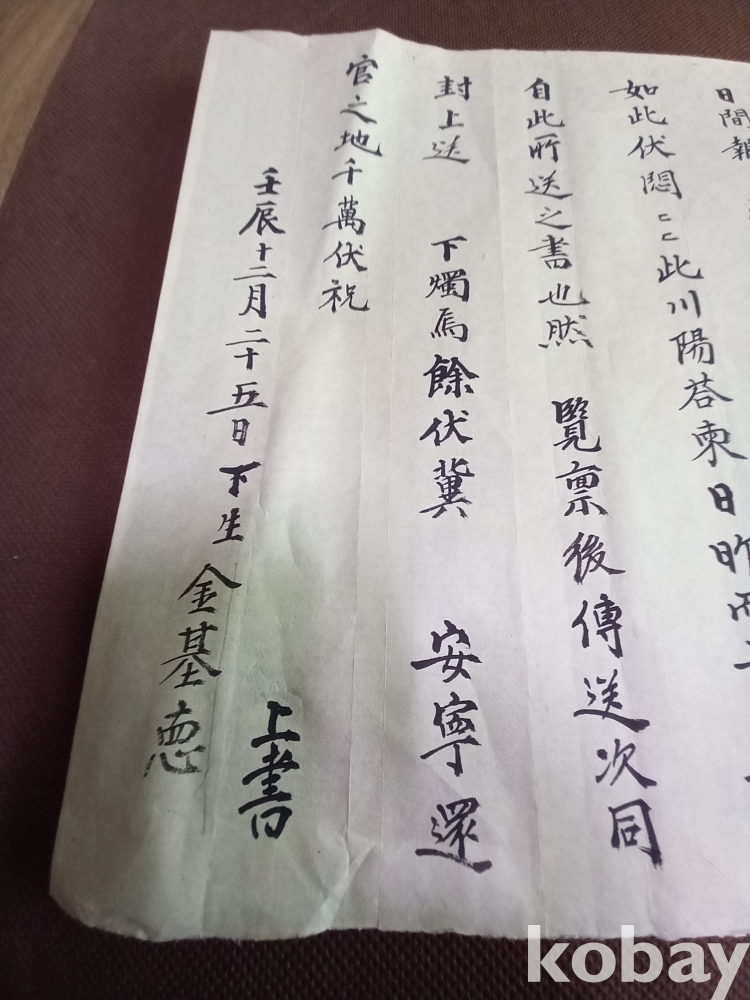 日間報
如此伏悶〻此川陽答柬日昨而
自此所送之書也然 覽稟後傳送次同
封上送 下燭焉餘伏冀 安寧還
官之地千萬伏祝
壬辰十二月二十五日下生金基悳
上書
kobay